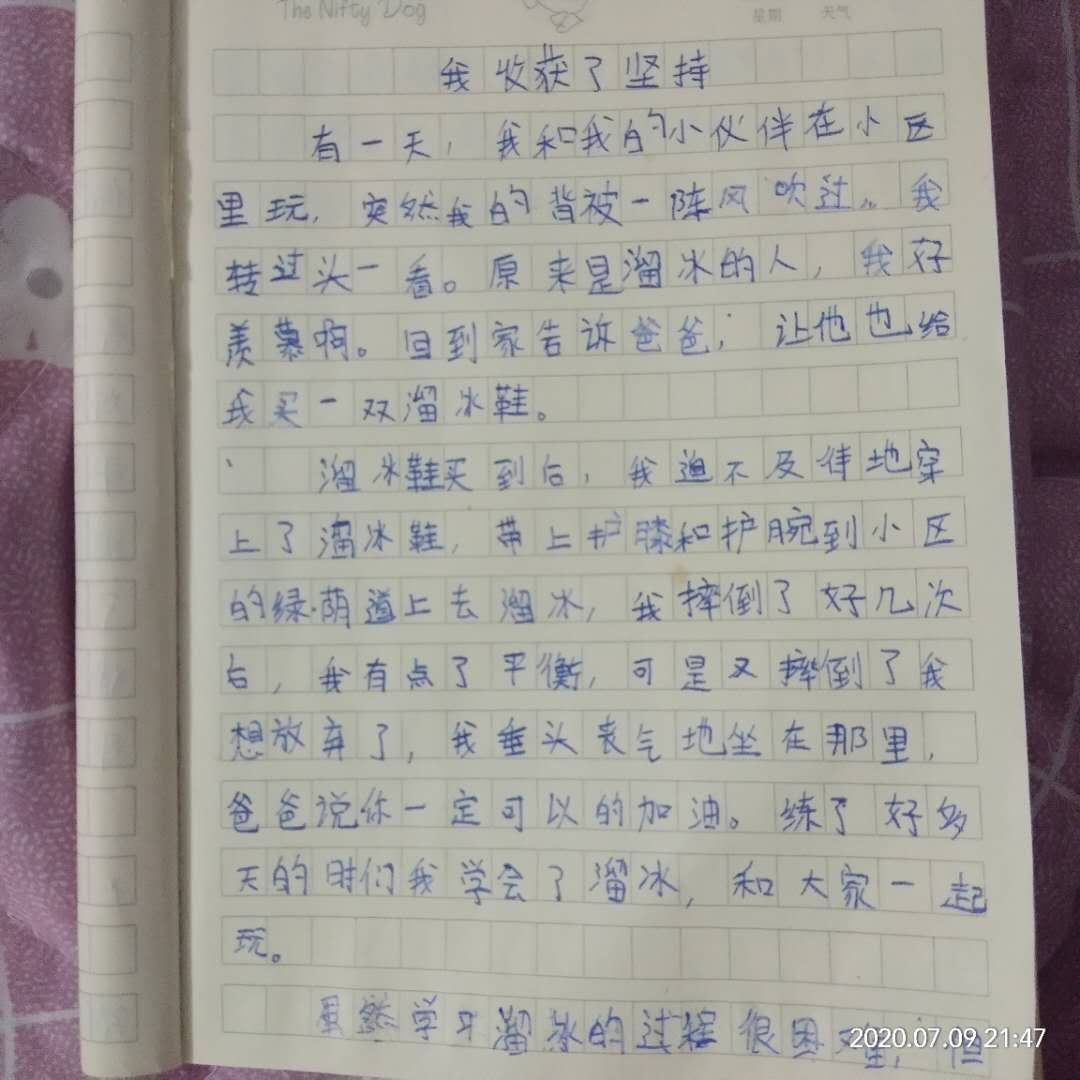 The Nifty Dog
星期 天气
我收获了坚持
有一天，我和我的小伙伴在小区
里玩，突然我的背被一阵风吹过。我
转过头一看。原来是溜冰的人，我好
羡慕啊。回到家告诉爸爸，让他也给
我买一双溜冰鞋。
溜冰鞋买到后，我迫不及待地穿
上了溜冰鞋，带上护膝和护腕到小区
的绿荫道上去溜冰，我摔倒了好几次
后，我有点了平衡，可是又摔倒了我
想放弃了，我垂头丧气地坐在那里，
爸爸说你一定可以的加油。练了好多
天的时们我学会了溜冰，和大家一起
玩。
虽然学习溜冰的过程很困难，但
2020.07.09 21:47